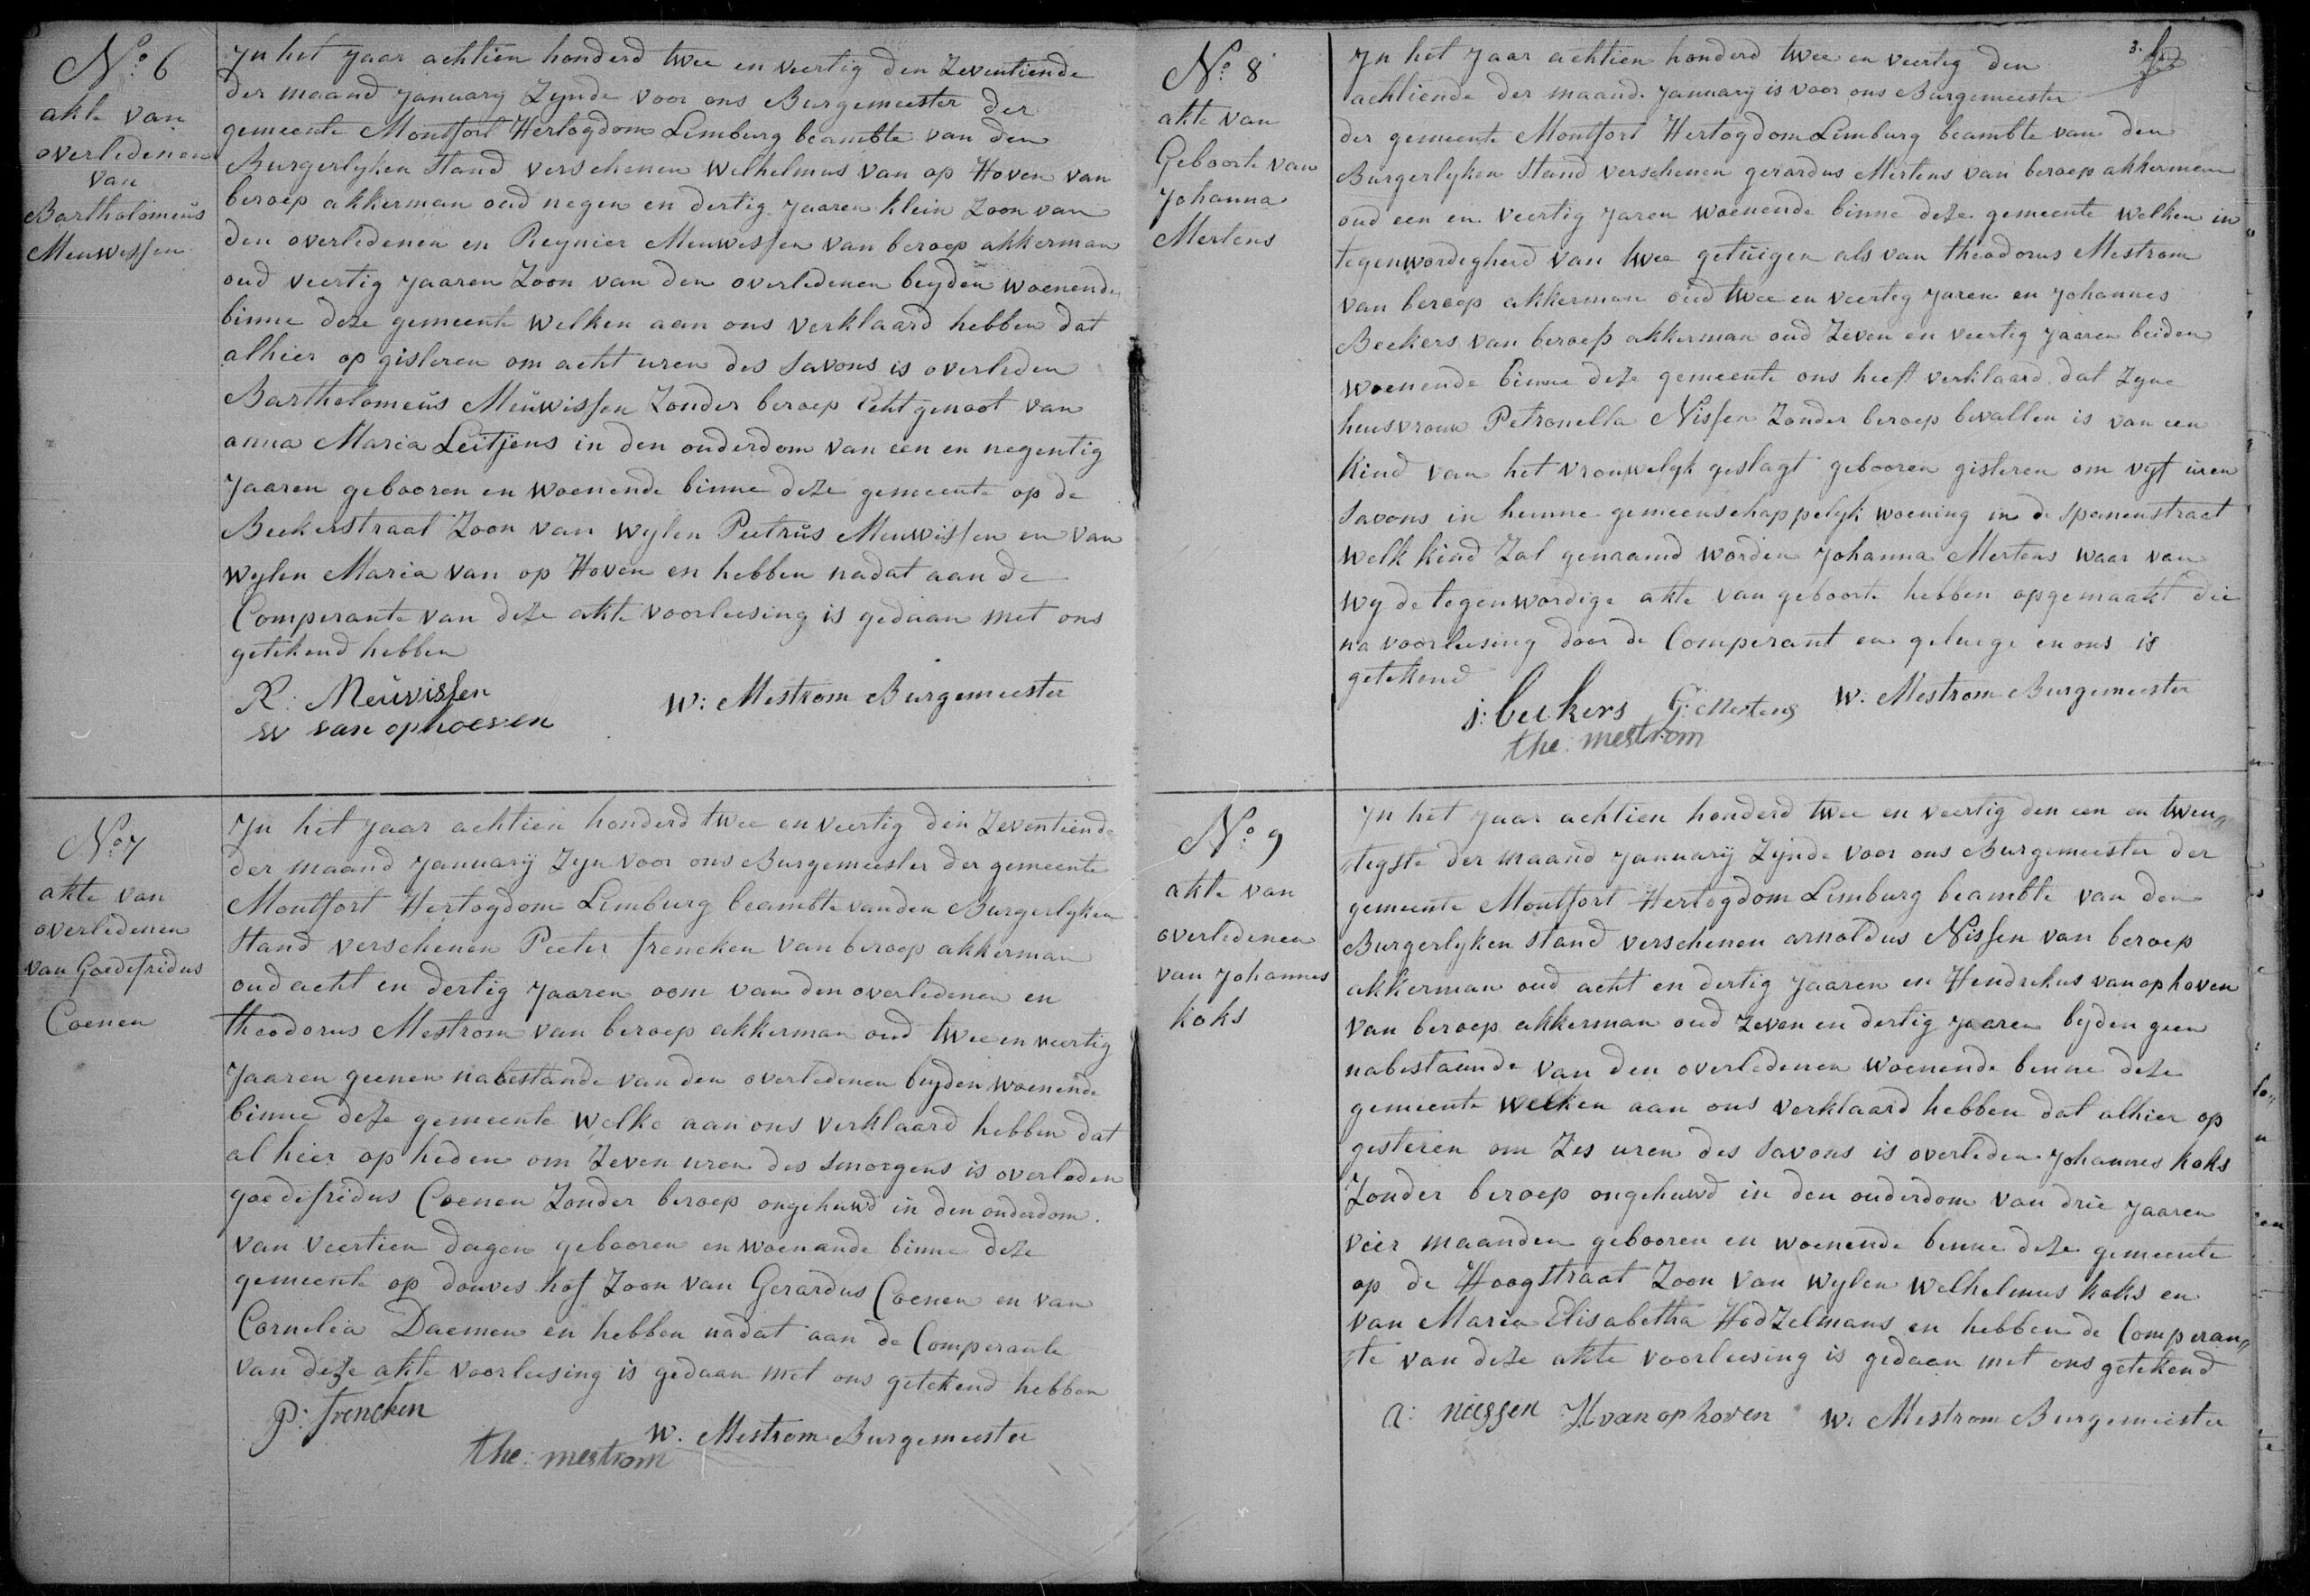 No 6
akte van
overledenen
van
Bartholomeüs
Meuwissen
Jn het Jaar achtien honderd twee en veertig den Zeventiende
der maand January Zynde voor ons Burgemeester der
gemeente Montfort Hertogdom Limburg beambte van den
Burgerlyken Stand verschenen Welhelmus van op Hoven van
beroep akkerman oud negen en dertig Jaaren klein Zoon van
den overledenen en Reynier Meuwessen van beroep akkerman
oud veertig Jaaren Zoon van den overledenen beyden woenende
binne deze gemeente welken aan ons verklaard hebben dat
alhier op gisteren om acht uren des Savons is overleden
Bartholomeüs Meüwissen Zonder beroep Echtgenoot van
anna Maria Leitjens in den ouderdom van een en negentig
Jaaren gebooren en woenende binne deze gemeente op de
Beekerstraat Zoon van wylen Peetrüs Meuwissen en van
wylen Maria van op Hoven en hebben nadat aan de
Comperante van deze akte voorleesing is gedaan met ons
getekend hebben
R: Meüvissen
w van ophoeven
W: Mestrom Burgemeester
No 7
akte van
overledenen
van Goedefridus
Coenen
Jn het Jaar achtien honderd twee en veertig den Zeventiende
der maand January Zyn voor ons Burgemeester der gemeente
Montfort Hertogdom Limburg beambte van den Burgerlyken
Stand verschenen Peeter frencken van beroep akkerman
oud acht en dertig Jaaren oom van den overledenen en
theodorus Mestrom van beroep akkerman oud twee en veertig
Jaaren geenen nabestande van den overledenen beyden woenende
binne deze gemeente welke aan ons verklaard hebben dat
al hier op heden om Zeven uren des smorgens is overleden
goedefridus Coenen Zonder beroep ongehuwd in den ouderdom
van veertien dagen gebooren en woenande binne deze
gemeente op douves hof Zoon van Gerardus Coenen en van
Cornelia Daemen en hebben nadat aan de Comperante
van deze akte voorleesing is gedaan met ons getekend hebben
P: frencken
the: mestrom
W. Mestrom Burgemeester
3.
No 8
akte van
Geboorte van
Johanna
Mertens
Jn het Jaar achtien honderd twee en veertig den
achtiende der maand January is voor ons Burgemeester
der gemeente Montfort Hertogdom Limburg beambte van den
Burgerlyken Stand verschenen gerardus Mertens van beroep akkerman
oud een en veertig Jaren woenende binne deze gemeente welken in
tegenwordigheid van twee getüigen als van theodorus Mestrom
van beroep akkerman oud twee en veertig Jaren en Johannes
Beekers van beroep akkerman oud Zeven en veertig Jaaren beiden
woenende binne deze gemeente ons heeft verklaard dat Zyne
huisvrouw Petronella Nissen Zonder beroep bevallen is van een
kind van het vrouwelyk geslagt gebooren gisteren om vyf üren
Savons in hunne gemeenschappelyk woening in de Spanenstraat
welk kind Zal genaamd worden Johanna Mertens waar van
wy de tegenwordige akte van geboorte hebben opgemaakt die
na voorleesing door de Comperant en getuege en ons is
getekend
j: beekers G: Mertens W. Mestrom Burgemeester
the mestrom
No 9
akte van
overledenen
van Johannes
koks
Jn het Jaar achtien honderd twee en veertig den een en twen„
„tegste der maand January Zynde voor ons Burgemeester der
gemeente Montfort Hertogdom Limburg beambte van den
Burgerlyken Stand verschenen arnoldus Nissen van beroep
akkerman oud acht en dertig Jaaren en Hendrekus van ophoven
van beroep akkerman oud Zeven en dertig Jaaren beyden geen
nabestaande van den overledenen woenende benne deze
gemeente welken aan ons verklaard hebben dat alhier op
gesteren om Zes uren des Savons is overleden Johannes koks
Zonder beroep ongehuwd in den ouderdom van drie Jaaren
vier maanden gebooren en woenende benne deze gemeente
op de Hoogstraat Zoon van wylen Welhelmus koks en
van Maria Elisabetha HodZelmans en hebben de Comperan„
„te van deze akte voorleesing is gedaan met ons getekend
a: niessen H van ophoven W. Mestrom Burgemeister